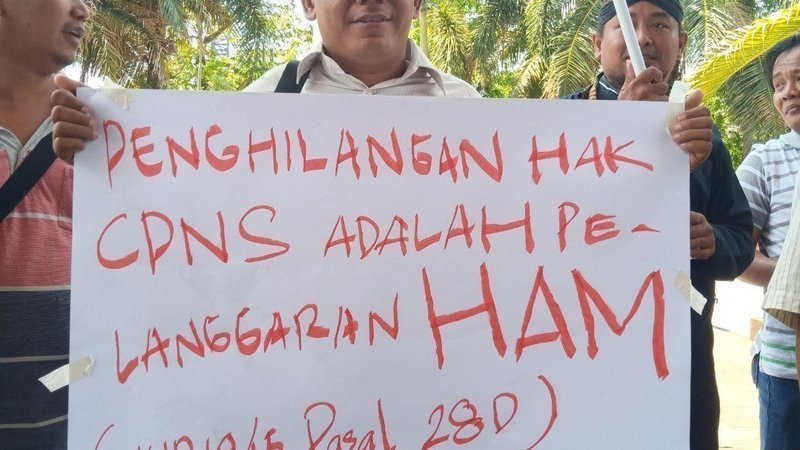 PENGHILANGAN HAK
CPNS ADALAH PE-
LANGGARAN HAM
Pasal 28D)